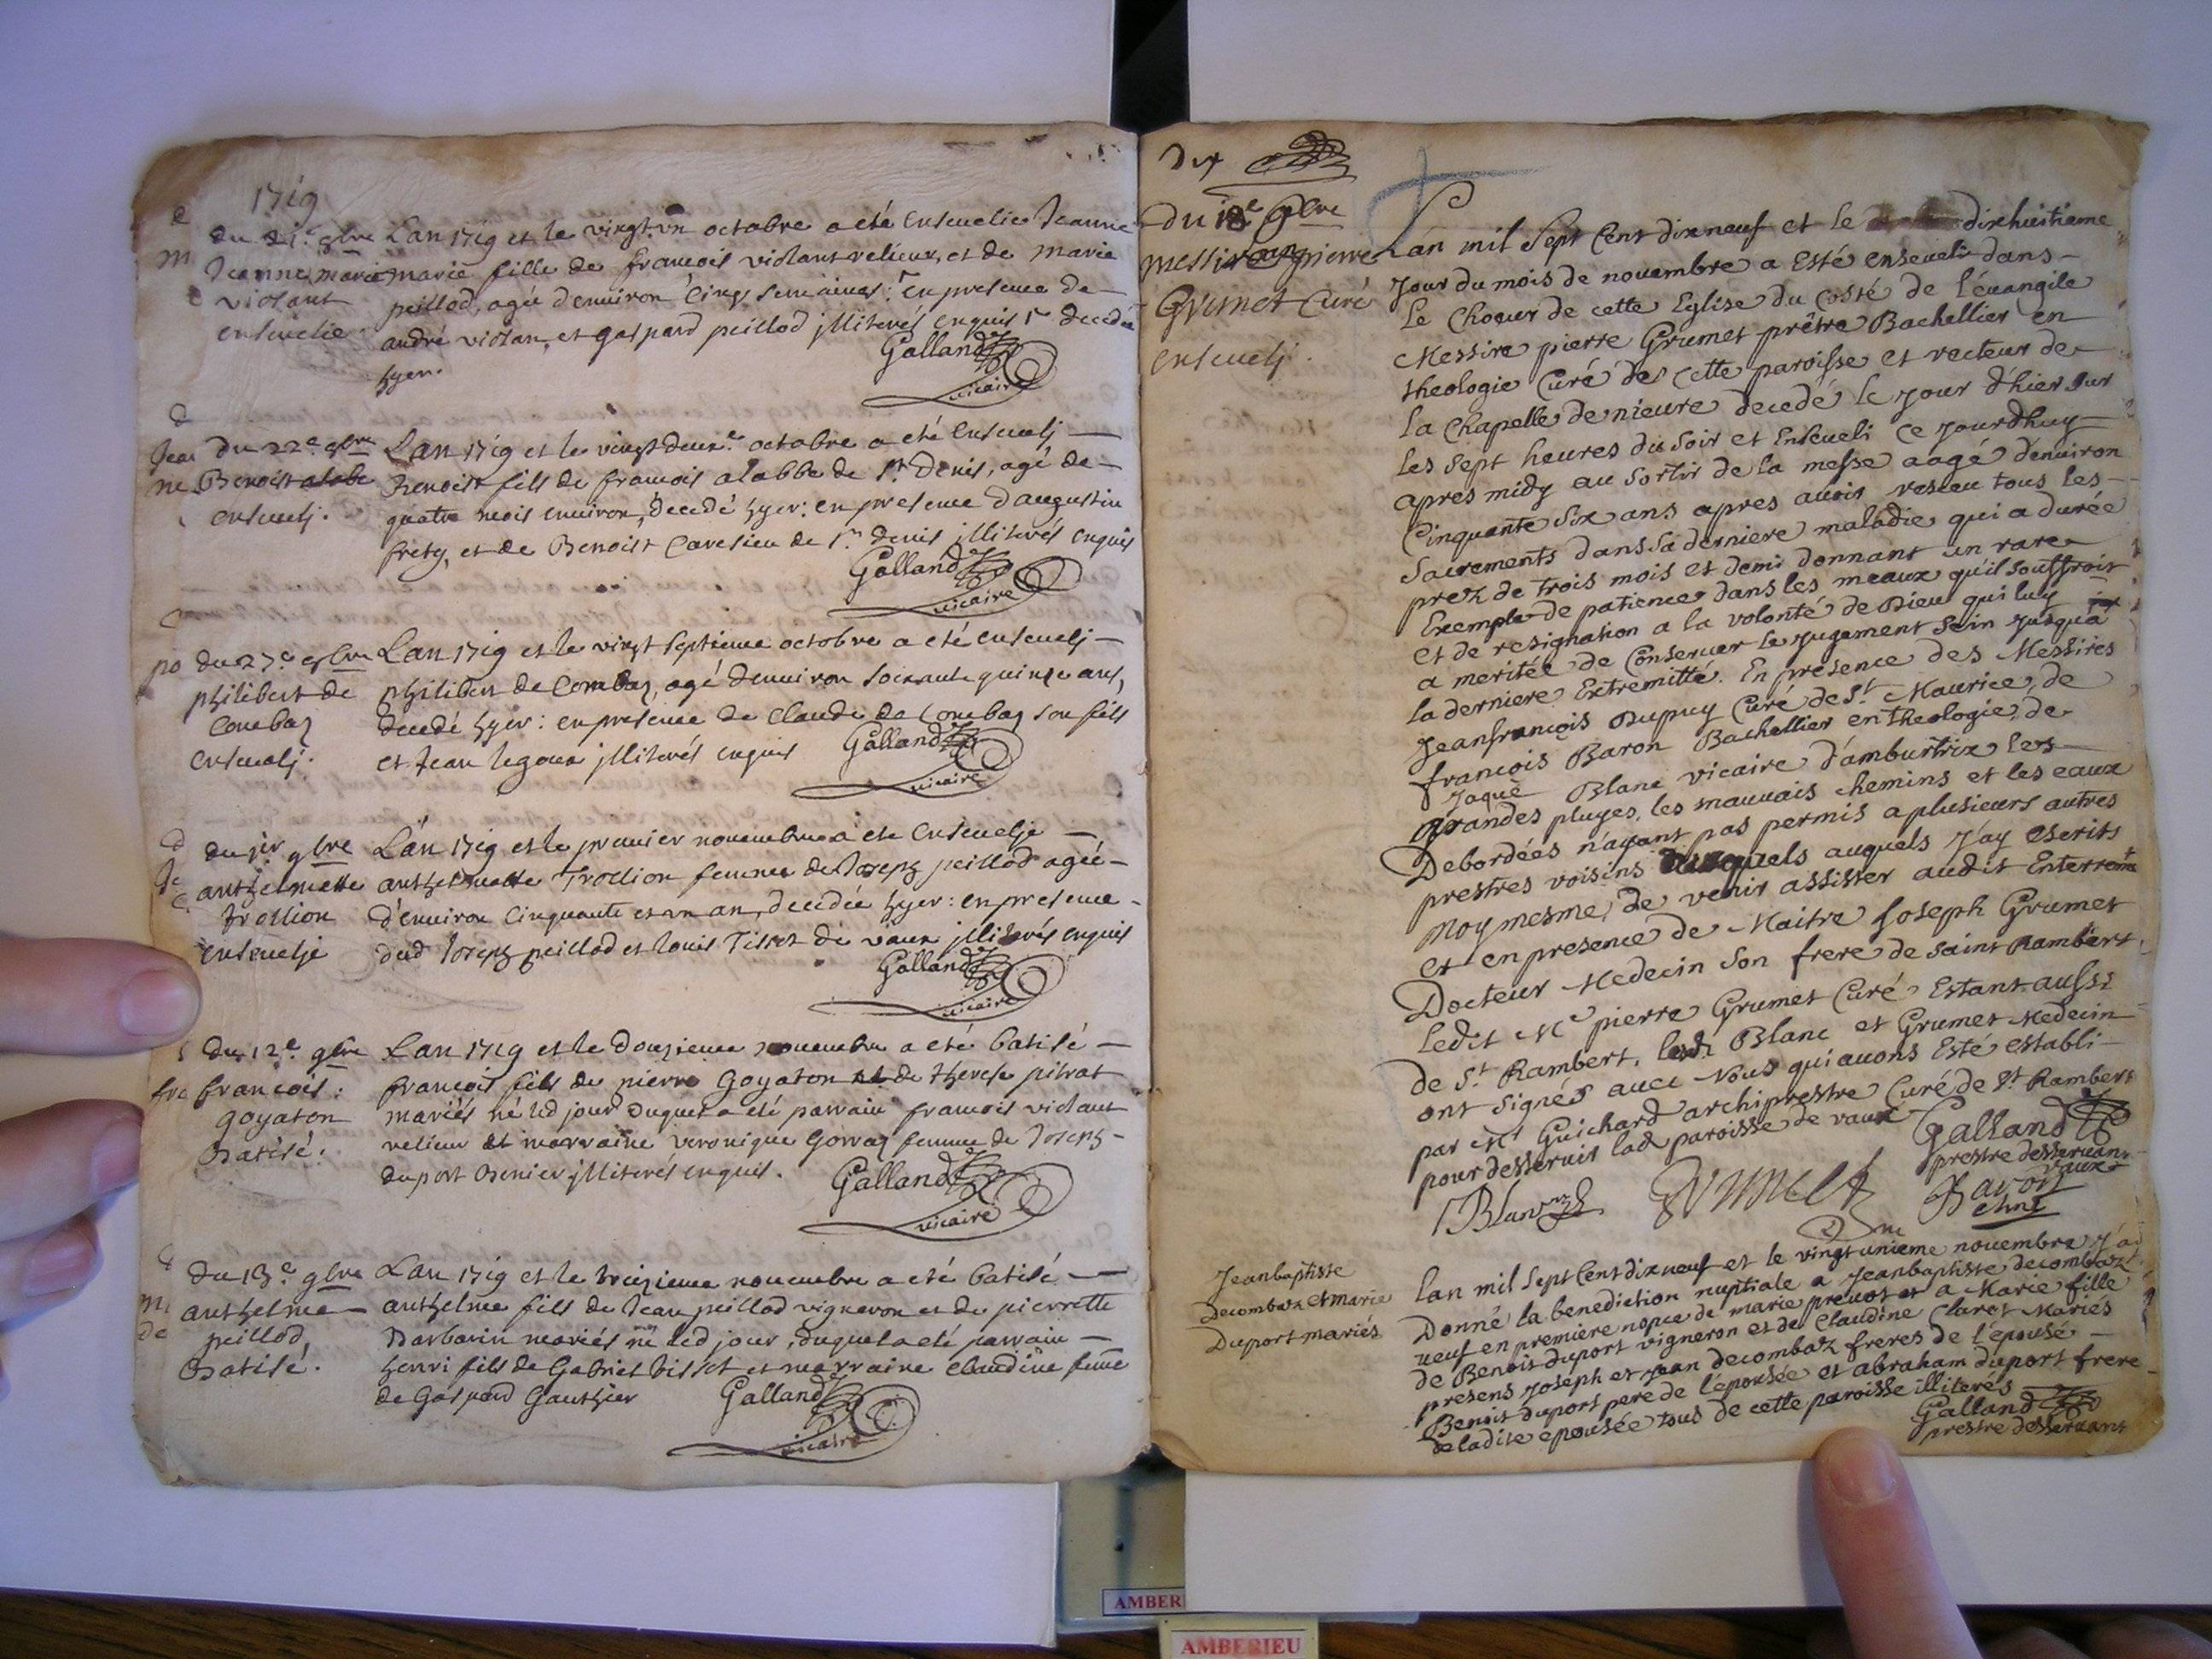 1719
du 21.e 8bre
Jeanne marie
violant
ensevelie.
Lan 1719 et le vingt un octobre a eté ensevelie Jeanne
marie fille de francois violant relieur, et de marie
peillod, agée denviron cinq semaines: en presence de
andré violan, et gaspard peillod jlliterés enquis decedée
hyer.
Galland
vicaire
du 22e 8bre
Benoist alabe
enseuelj.
Lan 1719 et le vingt deuxe octobre a eté enseuelj
Benoist fils de francois alabbe de St Denis, agé de
quatre mois enuiron, decedé hyer: en presence daugustin
frery, et de Benoist Cavesieu de St denis jlliterés enquis
Galland
vicaire
du 27e 8bre
philibert de
Combaz
enseuelj.
Lan 1719 et le vingt septieme octobre a eté enseuelj
philibert de Combaz, agé denuiron soixante quinze ans,
decedé hyer: en presence de Claude de Combaz son fils
et Jean legoux jlliterés enquis
Galland
vicaire
du jer 9bre
anthelmette
trollion
enseuelje
Lan 1719 et le premier nouembre a ete enseuelje
anthelmette Trollion femme de Joseph peillod agée
denuiron cinquante et un an, decedée hyer: en presence
dud Joseph peillod et louis Tisset de vaux jlliterés enquis
Galland
vicaire
du 12e 9bre
francois:
goyaton
Batisé:
Lan 1719 et le Douzieme nouembre a eté batisé
francois fils de pierre Goyaton et de therese pitrat
mariés né led jour duquel a eté parrain francois violant
relieur et marraine veronique Gorraz femme de Joseph
duport Benier jlliterés enquis.
Galland
vicaire
du 13e 9bre
anthelme
peillod
Batisé.
Lan 1719 et le treizieme nouembre a eté batisé
anthelme fils de Jean peillod vigneron et de pierrette
Barbarin mariés né led jour, duquel a eté parrain
henri fils de Gabriel tisset et marraine claudine feme
de Gaspard Gauthier
Galland
vicaire
Dix
Du 18e 9bre
messire pierre
Grumet Curé
enseuelj.
Lan mil sept Cent dixneuf et le dixhuitieme
Jour du mois de nouembre a Esté enseueli dans
le Choeur de cette Eglise du Costé de l'éuangile
Messire pierre Grumet prêtre Bachellier en
theologie Curé de cette paroisse et recteur de
la Chapelle de nieure decedé le jour d'hier sur
les sept heures du soir et Enseueli ce jourdhuy
apres midy au sortir de la messe aagé denuiron
Cinquante six ans apres auoir receu tous les
sacrements dans sa derniere maladie qui a durée
prez de trois mois et demi donnant un rare
Exemple de patience dans les meaux qu'il souffroit
et de resignation a la volonté de Dieu qui luy
a meritée de Conseruer le jugement sein jusqu'a
la derniere Extremitté. En presence des Messires
Jeanfrancois Dupuy Curé de St Maurice, de
francois Baron Bachellier en theologie, de
Jaque Blanc vicaire d'amburtrix les
grandes pluyes, les mauuais chemins et les eaux
Debordées n'ayant pas permis a plusieurs autres
prestres voisins auquels j'ay escrits
moy mesme, de venir assister audit Enterremt
et en presence de Maitre Joseph Grumet
Docteur Medecin son frere de saint Rambert,
ledit Mre pierre Grumet Curé Estant aussi
de St Rambert, lesd Blanc et Grumet Medecin
ont signés auec Nous qui auons Esté establi
par Mr Guichard archiprestre Curé de St Rambert
pour desseruir lad paroisse de vaux
Galland
prestre desseruant
vaux
Blanc
Grumet
Baron
Jeanbaptiste
Decombaz et marie
Duport mariés
lan mil sept Cent dixneuf et le vingt unieme nouembre j'ai
Donné la benediction nuptiale a Jeanbaptiste decombaz
veuf en premiere nopce de marie preuost et a Marie fille
de Benoit duport vigneron et de Claudine Claret Mariés
presens joseph et jean decombaz freres de l'épousé
Benoit duport pere de l'épousée et abraham duport frere
de ladite epousée tous de cette paroisse illiterés
Galland
prestre desseruant
AMBER
AMBERIEU